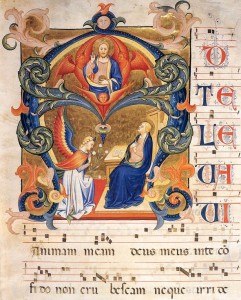 D
TE
LE
UA
UI
animam meam deus meus inte cō
fi do non eru bescam neque irri de